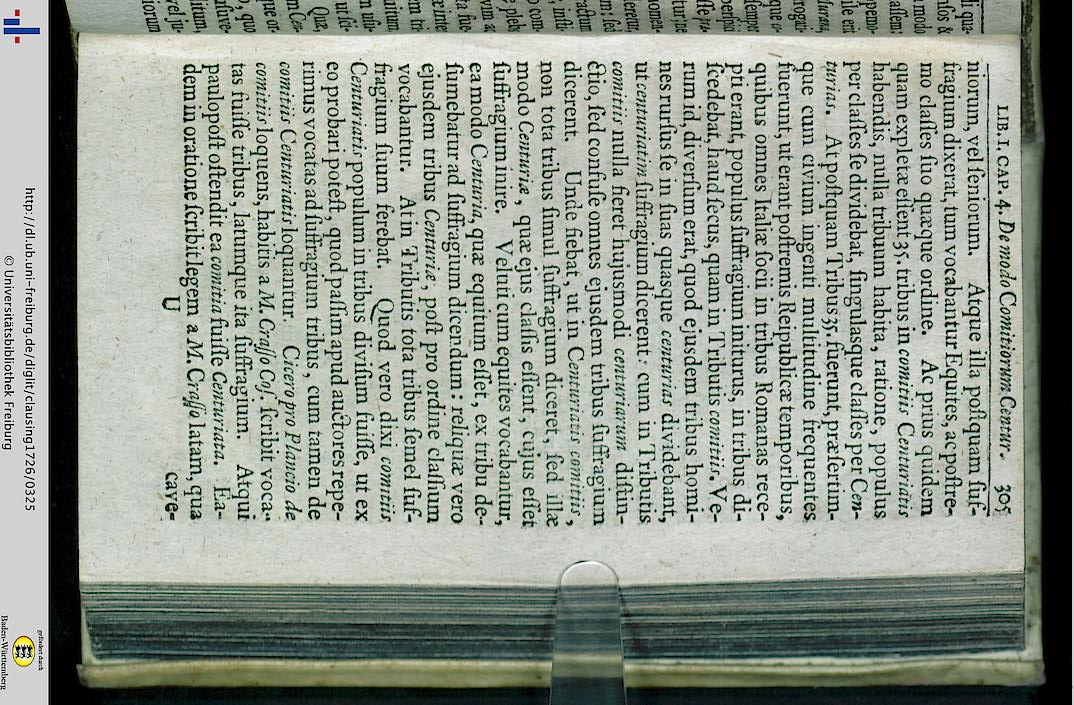 LIB. I. CAP. 4. De modo Comitiorum Centur. 305
niorum, vel ſeniorum. Atque illa poſtquam ſuf-
fragium dixerat, tum vocabantur Equites, ac poſtre-
mo claſſes ſuo quæque ordine. Ac prius quidem
quam expletæ eſſent 35. tribus in comitiis Centuriatis
habendis, nulla tribuum habita, ratione, populus
per claſſes ſe dividebat, ſingulasque claſſes per Cen-
turias. At poſtquam Tribus 35. fuerunt, præſertim-
que cum civium ingenti multitudine frequentes
fuerunt, ut erant poſtremis Reipublicæ temporibus,
quibus omnes Italiæ ſocii in tribus Romanas rece-
pti erant, populus ſuffragium initurus, in tribus di-
ſcedebat, haud ſecus, quam in Tributis comitiis. Ve-
rum id, diverſum erat, quod ejusdem tribus homi-
nes rurſus ſe in ſuas quasque centurias dividebant,
ut centuriatim ſuffragium dicerent: cum in Tributis
comitiis nulla fieret hujusmodi centuriarum diſtin-
ctio, ſed confuſe omnes ejusdem tribus ſuffragium
dicerent. Unde fiebat, ut in Centuriatis comitiis,
non tota tribus ſimul ſuffragium diceret, ſed illæ
modo Centuriæ, quæ ejus claſſis eſſent, cujus eſſet
ſuffragium inire. Veluti cum equites vocabantur,
ea modo Centuria, quæ equitum eſſet, ex tribu de-
ſumebatur ad ſuffragium dicendum: reliquæ vero
ejusdem tribus Centuriæ, poſt pro ordine claſſium
vocabantur. At in Tributis tota tribus ſemel ſuf-
fragium ſuum ferebat. Quod vero dixi comitiis
Centuriatis populum in tribus diviſum fuiſſe, ut ex
eo probari poteſt, quod paſſim apud auctores repe-
rimus vocatas ad ſuffragium tribus, cum tamen de
comitiis Centuriatis loquantur. Cicero pro Plancio de
comitiis loquens, habitis a M. Craſſo Coſ. ſcribit voca-
tas fuiſſe tribus, latumque ita ſuffragium. Atqui
paulopoſt oſtendit ea comitia fuiſſe Centuriata. Ea-
dem in oratione ſcribit legem a M. Craſſo latam, qua
U cave-
http://dl.ub.uni-freiburg.de/diglit/clausing1726/0325
© Universitätsbibliothek Freiburg
gefördert durch
Baden-Württemberg